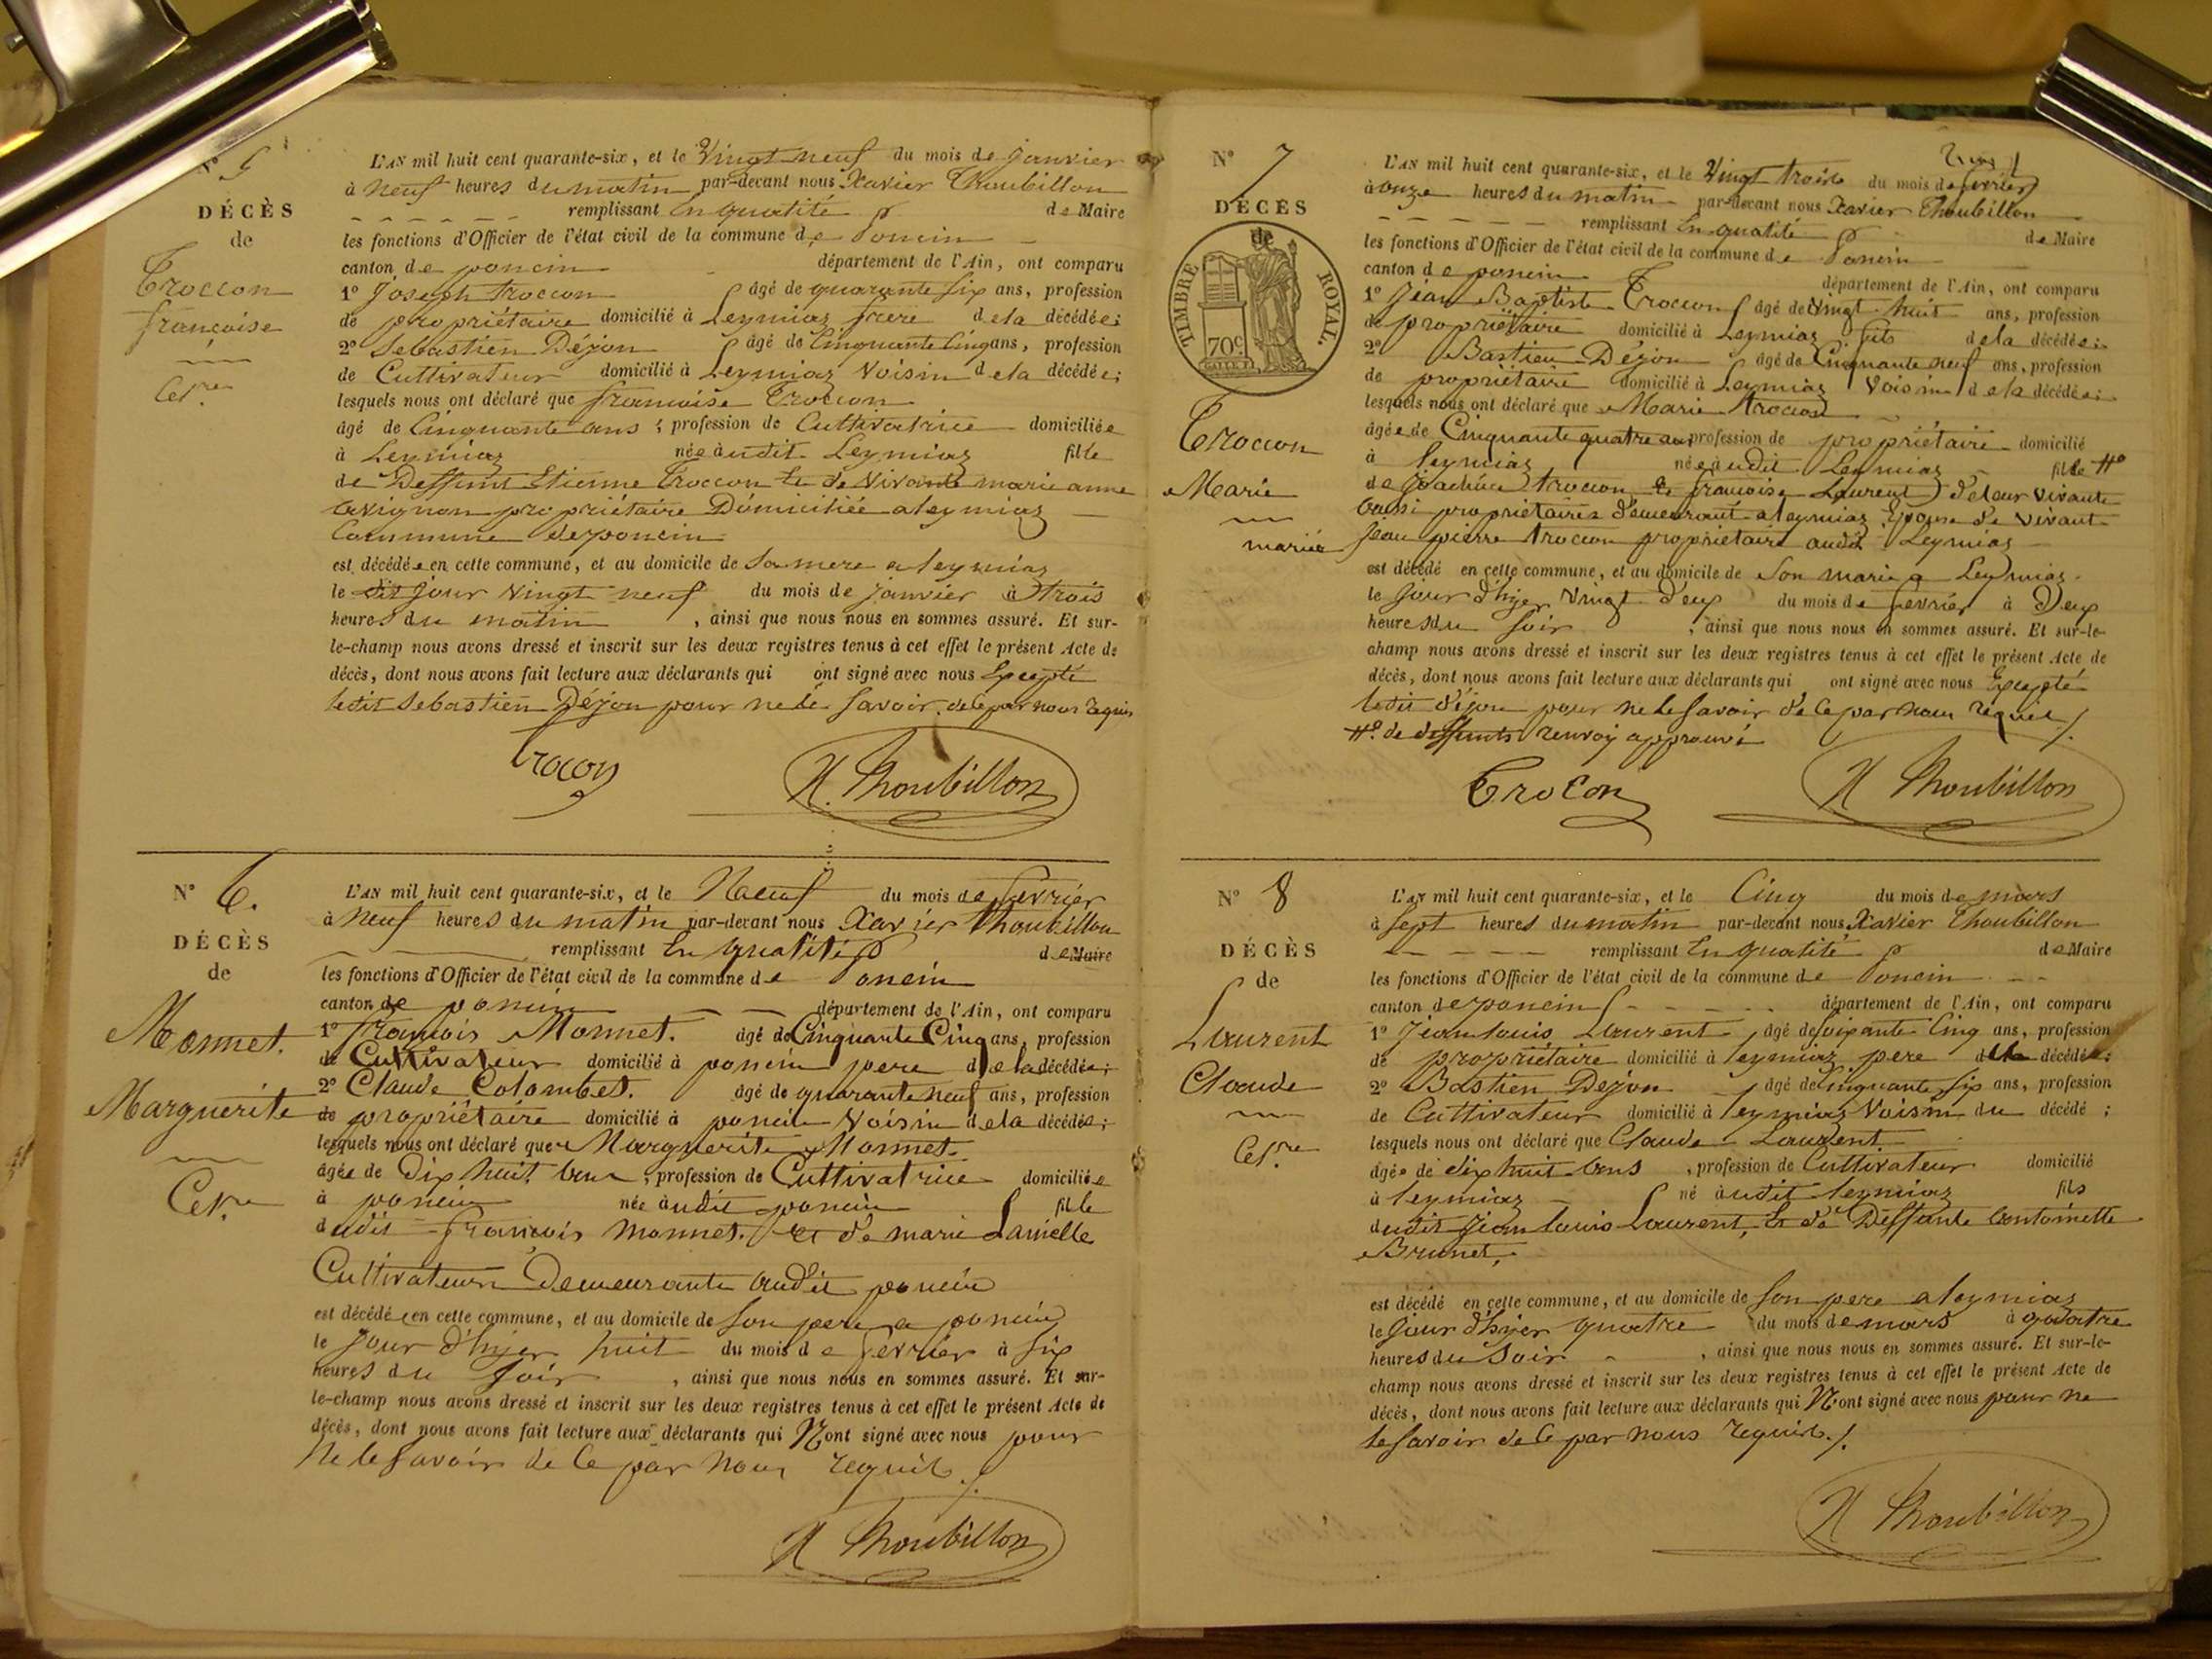 N° 5
DÉCÈS
de
Troccon
françoise
Cel.re
L'AN mil huit cent quarante-six, et le Vingt neuf du mois de janvier
à neuf heures du matin par-devant nous Xavier Thoubillon
remplissant En qualité de Maire
les fonctions d'Officier de l'état civil de la commune de Poncin
canton de poncin département de l'Ain, ont comparu
1° Joseph troccon âgé de quarante six ans, profession
de propriétaire domicilié à Leymiaz frere de la décédée;
2° Sebastien Déjon âgé de Cinquante Cinq ans, profession
de Cultivateur domicilié à Leymiaz Voisin de la décédée;
lesquels nous ont déclaré que francoise Troccon
âgé de Cinquante ans, profession de Cultivatrice domiciliée
à Leymiaz née audit Leymiaz fille
de Deffunt Etienne Troccon Et de Vivante marie anne
avignon propriétaire Domiciliée a leymiaz
Commune de poncin
est décédée en cette commune, et au domicile de Sa mere a leymiaz
le dit jour vingt neuf du mois de janvier à trois
heures du matin, ainsi que nous nous en sommes assuré. Et sur-
le-champ nous avons dressé et inscrit sur les deux registres tenus à cet effet le présent Acte de
décès, dont nous avons fait lecture aux déclarants qui ont signé avec nous Excepté
ledit Sebastien Déjon pour ne le Savoir. de ce par nous requis
trocon X. Thoubillon
N° 6.
DÉCÈS
de
Monnet.
Marguerite
Cel.re
L'AN mil huit cent quarante-six, et le Neuf du mois de fevrier
à neuf heures du matin par-devant nous Xavier Thoubillon
remplissant En qualité de Maire
les fonctions d'Officier de l'état civil de la commune de Poncin
canton de poncin département de l'Ain, ont comparu
1° françois Monnet. âgé de Cinquante Cinq ans, profession
de Cultivateur domicilié à poncin pere de la décédée;
2° Claude Colombet. âgé de quarante neuf ans, profession
de propriétaire domicilié à poncin Voisin de la décédée;
lesquels nous ont déclaré que Marguerite Monnet.
âgée de Dix huit ans, profession de Cultivatrice domiciliée
à poncin née audit poncin fille
dudit françois Monnet. Et de marie Lanielle
Cultivateurs Demeurants audit poncin
est décédée en cette commune, et au domicile de Son pere a poncin
le Jour d'hyer huit du mois de fevrier à Six
heures du Soir, ainsi que nous nous en sommes assuré. Et sur-
le-champ nous avons dressé et inscrit sur les deux registres tenus à cet effet le présent Acte de
décès, dont nous avons fait lecture aux déclarants qui N'ont signé avec nous pour
Ne le Savoir de ce par nous requis./.
X Thoubillon
N° 7
DÉCÈS
de
TIMBRE ROYAL.
70c
Troccon
Marie
mariée
L'AN mil huit cent quarante-six, et le Vingt trois du mois de fevrier
à onze heures du matin par-devant nous Xavier Thoubillon
remplissant En qualité de Maire
les fonctions d'Officier de l'état civil de la commune de Poncin
canton de poncin département de l'Ain, ont comparu
1° Jean Baptiste Troccon âgé de Vingt huit ans, profession
de propriétaire domicilié à Leymiaz fils de la décédée;
2° Bastien Déjon âgé de Cinquante neuf ans, profession
de propriétaire domicilié à Leymiaz Voisin de la décédée;
lesquels nous ont déclaré que Marie troccon
âgée de Cinquante quatre ans profession de propriétaire domicilié
à leymiaz née audit Leymiaz fille #°
de joachim troccon Et francoise Laurent de leur vivants
aussi propriétaires demeurant a leymiaz Epouse de vivant
Jean pierre troccon propriétaire audit Leymiaz
est décédé en cette commune, et au domicile de Son marie a Leymiaz
le Jour d'hyer vingt deux du mois de fevrier à Deux
heures du Soir, ainsi que nous nous en sommes assuré. Et sur-le-
champ nous avons dressé et inscrit sur les deux registres tenus à cet effet le présent Acte de
décès, dont nous avons fait lecture aux déclarants qui ont signé avec nous Excepté
ledit déjon pour ne le Savoir de ce par nous requis ./.
#° de deffunts renvoi approuvé
Trocon X Thoubillon
N° 8
DÉCÈS
de
Laurent
Claude
Cel.re
L'AN mil huit cent quarante-six, et le Cinq du mois de mars
à Sept heures du matin par-devant nous Xavier Thoubillon
remplissant En qualité de Maire
les fonctions d'Officier de l'état civil de la commune de Poncin
canton de poncin département de l'Ain, ont comparu
1° Jean louis Laurent âgé de Soixante Cinq ans, profession
de propriétaire domicilié à leymiaz pere décédé;
2° Bastien Dejon âgé de Cinquante Six ans, profession
de Cultivateur domicilié à leymiaz Voisin du décédé;
lesquels nous ont déclaré que Claude Laurent
âgé de dix huit ans, profession de Cultivateur domicilié
à leymiaz né audit leymiaz fils
dudit Jean louis Laurent, Et de Deffunte antoinette
Brunet,
est décédé en cette commune, et au domicile de Son pere a leymiaz
le Jour d'hyer quatre du mois de mars à quatre
heures du Soir, ainsi que nous nous en sommes assuré. Et sur-le-
champ nous avons dressé et inscrit sur les deux registres tenus à cet effet le présent Acte de
décès, dont nous avons fait lecture aux déclarants qui N'ont signé avec nous pour ne
le Savoir de ce par nous requis./.
X Thoubillon